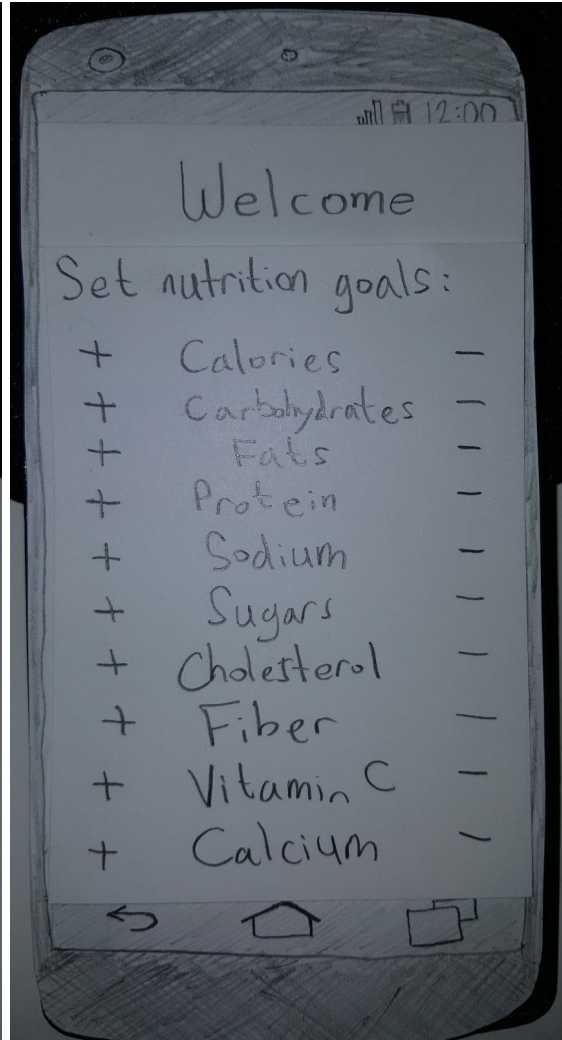 12:00
Welcome
Set nutrition goals:
+ Calories −
+ Carbohydrates −
+ Fats −
+ Protein −
+ Sodium −
+ Sugars −
+ Cholesterol −
+ Fiber −
+ Vitamin C −
+ Calcium −